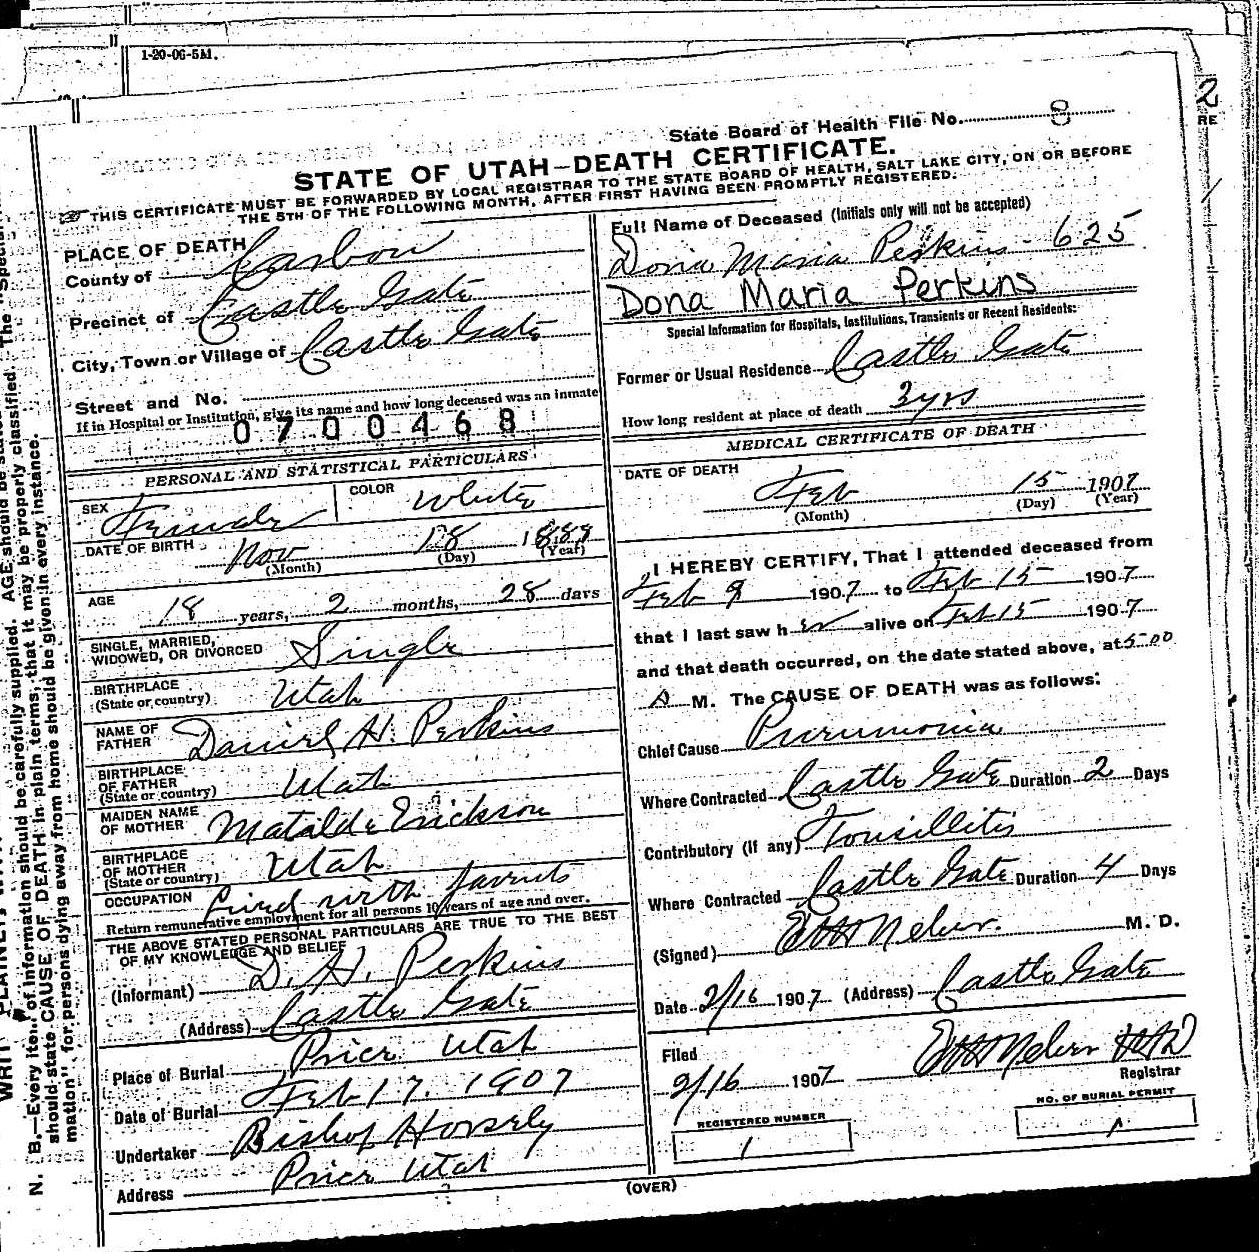 1-20-06-5M.
2
RE
State Board of Health File No. 8
STATE OF UTAH—DEATH CERTIFICATE.
THIS CERTIFICATE MUST BE FORWARDED BY LOCAL REGISTRAR TO THE STATE BOARD OF HEALTH, SALT LAKE CITY, ON OR BEFORE
THE 5TH OF THE FOLLOWING MONTH, AFTER FIRST HAVING BEEN PROMPTLY REGISTERED.
PLACE OF DEATH
County of Carbon
Precinct of Castle Gate
City, Town or Village of Castle Gate
Street and No.
If in Hospital or Institution, give its name and how long deceased was an inmate
0700468
PERSONAL AND STATISTICAL PARTICULARS
SEX Female COLOR White
DATE OF BIRTH Nov 18 1888
(Month) (Day) (Year)
AGE 18 years, 2 months, 28 days
SINGLE, MARRIED,
WIDOWED, OR DIVORCED Single
BIRTHPLACE
(State or country) Utah
NAME OF
FATHER Daniel H. Perkins
BIRTHPLACE
OF FATHER
(State or country) Utah
MAIDEN NAME
OF MOTHER Matilde Erickson
BIRTHPLACE
OF MOTHER
(State or country) Utah
OCCUPATION Lived with parents
Return remunerative employment for all persons 10 years of age and over.
THE ABOVE STATED PERSONAL PARTICULARS ARE TRUE TO THE BEST
OF MY KNOWLEDGE AND BELIEF
(Informant) D. H. Perkins
(Address) Castle Gate
Place of Burial Price Utah
Date of Burial Feb 17. 1907
Undertaker Bishop Horsely
Address Price Utah
Full Name of Deceased (Initials only will not be accepted)
Dona Maria Perkins - 625
Dona Maria Perkins
Special Information for Hospitals, Institutions, Transients or Recent Residents:
Former or Usual Residence Castle Gate
How long resident at place of death 3 yrs
MEDICAL CERTIFICATE OF DEATH
DATE OF DEATH
Feb 15 1907
(Month) (Day) (Year)
I HEREBY CERTIFY, That I attended deceased from
Feb 9 1907 to Feb 15 1907
that I last saw her alive on Feb 15 1907
and that death occurred, on the date stated above, at 5-00
A M. The CAUSE OF DEATH was as follows:
Chief Cause Pneumonia
Where Contracted Castle Gate Duration 2 Days
Contributory (if any) Tonsillitis
Where Contracted Castle Gate Duration 4 Days
(Signed) M. D.
Date 2/16 1907 (Address) Castle Gate
Filed
2/16 1907
Registrar
REGISTERED NUMBER
1
NO. OF BURIAL PERMIT
1
(OVER)
N. B.—Every item of information should be carefully supplied. AGE should be stated
should state CAUSE OF DEATH in plain terms, that it may be properly classified. The "Special
mation" for persons dying away from home should be given in every instance.